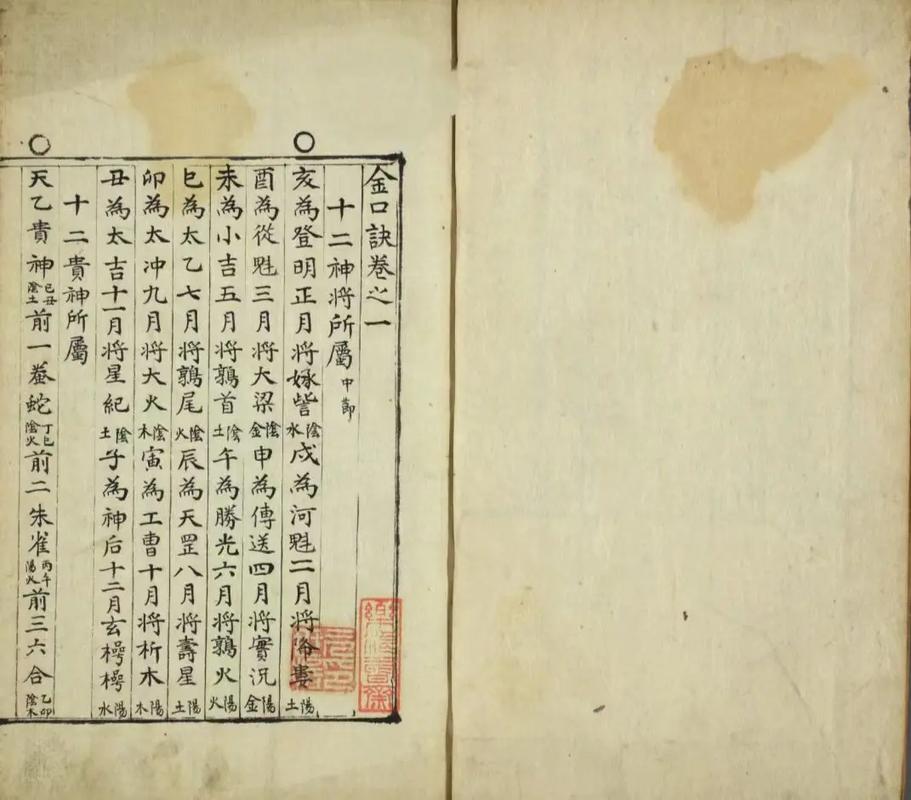 金口訣卷之一
十二神将所屬中節
亥為登明正月將娵訾陰水戌為河魁二月將夅婁陽土
酉為從魁三月將大梁陰金申為傳送四月將實沉陽金
未為小吉五月將鶉首陰土午為勝光六月將鶉火陽火
巳為太乙七月將鶉尾陰火辰為天罡八月將壽星陽土
卯為太冲九月將大火陰木寅為工曹十月將析木陽木
丑為太吉十一月將星紀陰土子為神后十二月玄枵枵陽水
十二貴神所屬
天乙貴神己丑陰土前一螣蛇丁巳陰火前二朱雀丙午陽火前三六合乙卯陰木